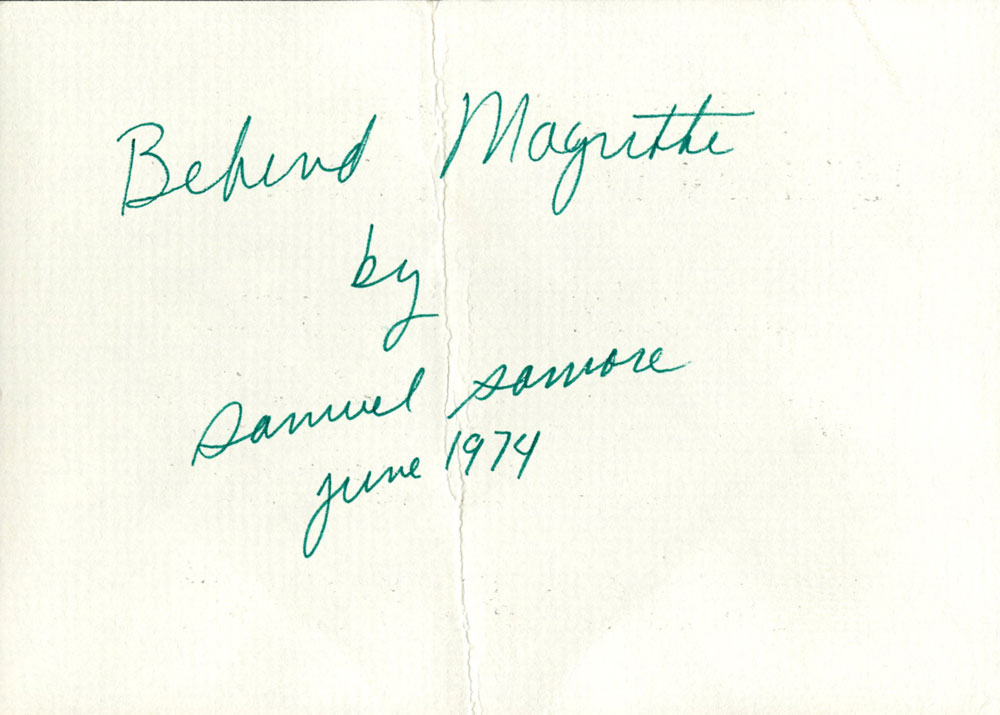 Behind Magritte
by
Samuel Samore
june 1974